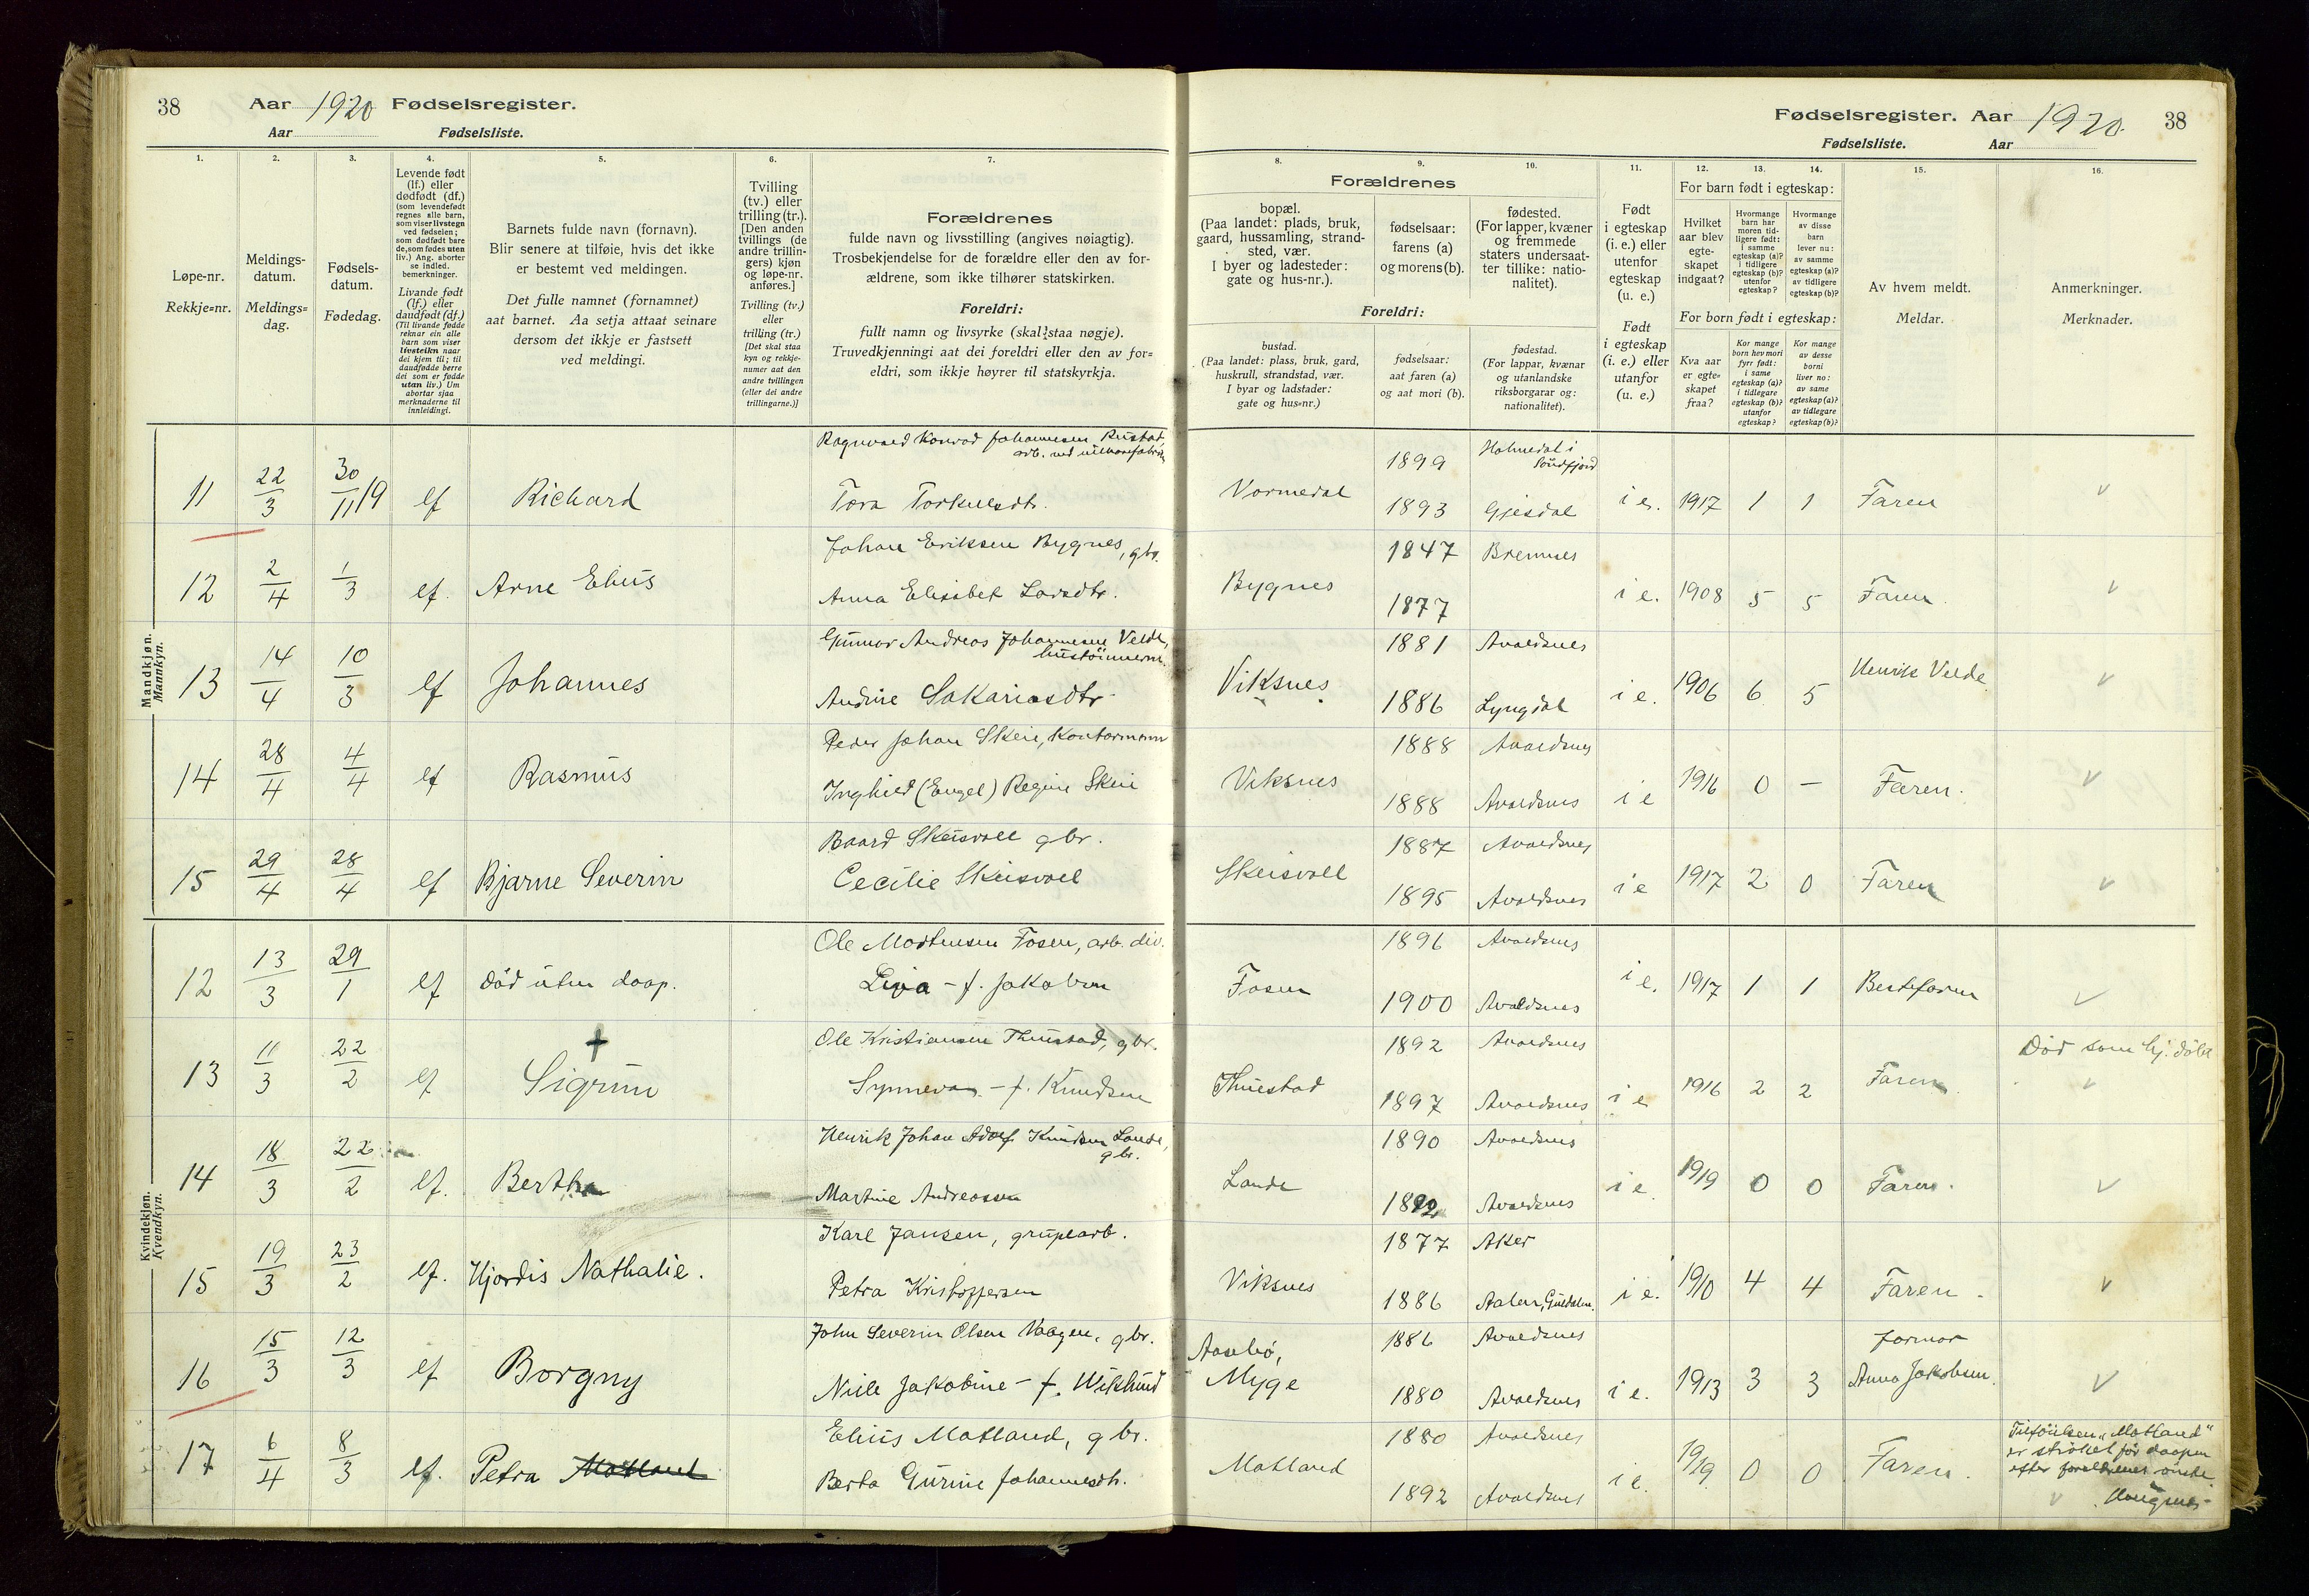 38 Aar 1920 Fødselsregister.
Aar Fødselsliste.
Fødselsregister. Aar 1920. 38
Fødselsliste. Aar
1. 2. 3. 4. 5. 6. 7.
Løpe-nr.
Rekkje-nr.
Meldings-
datum.
Meldings-
dag.
Fødsels-
datum.
Fødedag.
Levende født
(lf.) eller
dødfødt (df.)
(som levendefødt
regnes alle barn,
som viser livstegn
ved fødselen;
som dødfødt bare
de, som fødes uten
liv.) Ang. aborter
se indled.
bemerkninger.
Livande født
(lf.) eller
daudfødt (df.)
(Til livande fødde
reknar ein alle
barn som viser
livsteikn naar
dei kjem til; til
daudfødde berre
dei som er fødde
utan liv.) Um
abortar sjaa
merknaderne til
innleidingi.
Barnets fulde navn (fornavn).
Blir senere at tilføie, hvis det ikke
er bestemt ved meldingen.
Det fulle namnet (fornamnet)
aat barnet. Aa setja attaat seinare
dersom det ikkje er fastsett
ved meldingi.
Tvilling
(tv.) eller
trilling (tr.).
[Den anden
tvillings (de
andre trillin-
gers) kjøn
og løpe-nr.
anføres.]
Tvilling (tv.)
eller
trilling (tr.)
[Det skal staa
kyn og rekkje-
numer aat den
andre tvillingen
(eller dei andre
trillingarne.)]
Forældrenes
fulde navn og livsstilling (angives nøiagtig).
Trosbekjendelse for de forældre eller den av for-
ældrene, som ikke tilhører statskirken.
Foreldri:
fullt namn og livsyrke (skal staa nøgje).
Truvedkjenningi aat dei foreldri eller den av for-
eldri, som ikkje høyrer til statskyrkja.
8. 9. 10. 11. 12. 13. 14. 15. 16.
Forældrenes
bopæl.
(Paa landet: plads, bruk,
gaard, hussamling, strand-
sted, vær.
I byer og ladesteder:
gate og hus-nr.).
fødselsaar:
farens (a)
og morens (b).
fødested.
(For lapper, kvæner
og fremmede
staters undersaat-
ter tillike: natio-
nalitet).
Foreldri:
bustad.
(Paa landet: plass, bruk, gard,
huskrull, strandstad, vær.
I byar og ladstader:
gate og hus-nr.)
fødselsaar:
aat faren (a)
og aat mori (b).
fødestad.
(For lappar, kvænar
og utanlandske
riksborgarar og:
nationalitet).
Født
i egteskap
(i. e.) eller
utenfor
egteskap
(u. e.)
Født
i egteskap
(i. e.) eller
utanfor
(u. e.)
For barn født i egteskap:
Hvilket
aar blev
egte-
skapet
indgaat?
Hvormange
barn har
moren tid-
ligere født:
i samme
egteskap (a)?
i tidligere
egteskap (b)?
utenfor
egteskap?
Hvormange
av disse
barn
lever nu:
av samme
egteskap (a)?
av tidligere
egteskap (b)?
For born født i egteskap:
Kva aar
er egte-
skapet
fraa?
Kor mange
born hev mori
fyrr født:
i same
egteskap (a)?
i tidlegare
egteskap (b)?
utanfor
egteskap?
Kor mange
av desse
borni
liver no:
av same
egteskap (a)?
av tidlegare
egteskap (b)?
Av hvem meldt.
Meldar.
Anmerkninger.
Merknader.
Mandkjøn.
Mannkyn.
Ragnvald Konrad Johannesen Rustad,
11 22/3 30/11 19 lf Richard
Tora Torkelsdtr.
Vormedal 1899 Holmedal i Söndfjord
1893 Gjesdal i e. 1917 1 1 Faren
Johan Eriksen Bygnes, gbr.
12 2/4 1/3 lf. Arne Elius
Anna Elisabet Larsdtr.
Bygnes 1847 Bremnes
1877 i e. 1908 5 5 Faren.
Gunnar Andreas Johannesen Velde,
13 14/4 10/3 lf Johannes
Andrine Sakariasdtr.
Viksnes 1881 Avaldsnes
1886 Lyngdal i e. 1906 6 5 Henrik Velde
Peder Johan Skeie, Kontormann
14 28/4 4/4 lf Rasmus
Inghild (Engel) Regine Skeie
Viksnes 1888 Avaldsnes
1888 Avaldsnes i e 1916 0 — Faren.
Baard Skeisvoll gbr.
15 29/4 28/4 lf Bjarne Severin
Cecilie Skeisvoll
Skeisvoll 1887 Avaldsnes
1895 Avaldsnes i e 1917 2 0 Faren
Kvindekjøn.
Kvendkyn.
Ole Mortensen Fosen, arb. div.
12 13/3 29/1 lf Död uten daap.
Livia - f. Jakobsen
Fosen 1896 Avaldsnes
1900 Avaldsnes i e. 1917 1 1 Bestefaren
Ole Kristiansen Thuestad, gbr.
13 11/3 22/2 lf Sigrun
Synneva - f. Knudsen
Thuestad 1892 Avaldsnes
1897 Avaldsnes i e 1916 2 2 Faren Död som hj. döbt
Henrik Johan Adolf Knudsen Lande,
gbr.
14 18/3 22/2 lf. Bertha
Martine Andreassen
Lande 1890 Avaldsnes
1892 Avaldsnes i e. 1919 0 0 Faren.
Karl Jansen, grubearb.
15 19/3 23/2 lf. Hjordis Nathalie.
Petra Kristoffersen
Viksnes 1877 Aker
1886 Aalen, Guldalen. i e. 1910 4 4 Faren.
John Severin Olsen Vaagen, gbr.
16 15/3 12/3 lf Borgny
Nille Jakobine - f. Wiklund
Aasebö,
Myge 1886 Avaldsnes
1880 Avaldsnes i e. 1913 3 3 farmor
Anna Jakobsen.
Elius Matland, gbr.
17 6/4 8/3 lf. Petra Matland
Berta Gurine Johannesdtr.
Matland 1880 Avaldsnes
1892 Avaldsnes i e. 1919 0 0 Faren.
Tilföielsen "Matland"
er ströket för daapen
efter foreldrenes önske